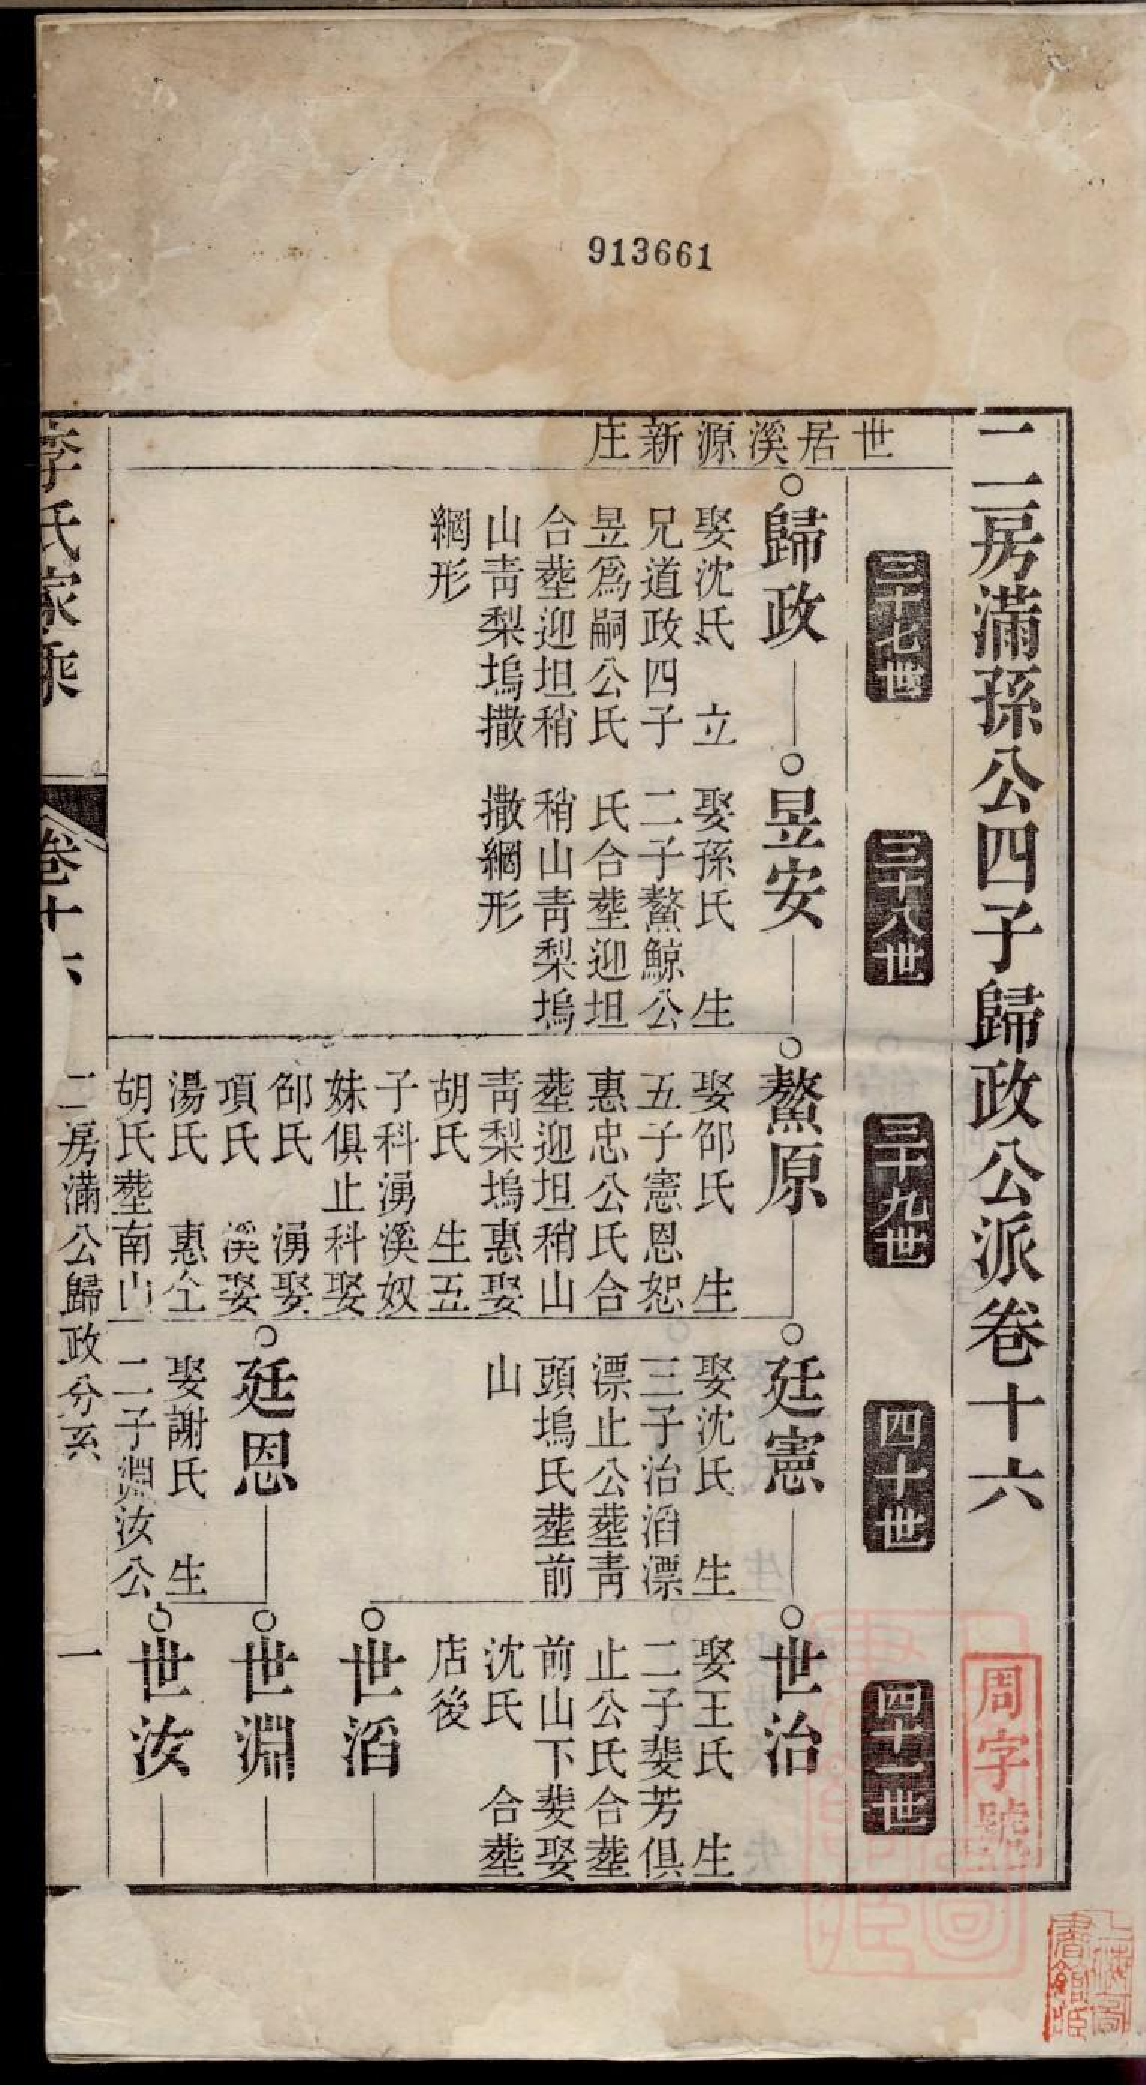 913661
二房滿孫公四子歸政公派卷十六
周字號
三十七世
三十八世
三十九世
四十世
四十一世
世居溪源新庄
歸政
娶沈氏 立
兄道政四子
昱爲嗣公氏
合塟迎坦稍
山靑梨塢撒
網形
昱安
娶孫氏 生
二子鰲鯨公
氏合塟迎坦
稍山靑梨塢
撒網形
鰲原
娶邰氏 生
五子憲恩恕
惠忠公氏合
塟迎坦稍山
靑梨塢惠娶
胡氏 生五
子科湧溪奴
妹俱止科娶
邰氏 湧娶
項氏 溪娶
湯氏 惠仝
胡氏塟南山
廷憲
娶沈氏 生
三子治滔漂
漂止公塟靑
頭塢氏塟前
山
廷恩
娶謝氏 生
二子淵汝公
世治
娶王氏 生
二子斐芳俱
止公氏合塟
前山下斐娶
沈氏 合塟
店後
世滔
世淵
世汝
李氏家乘
卷十六
二房滿公歸政分系
一